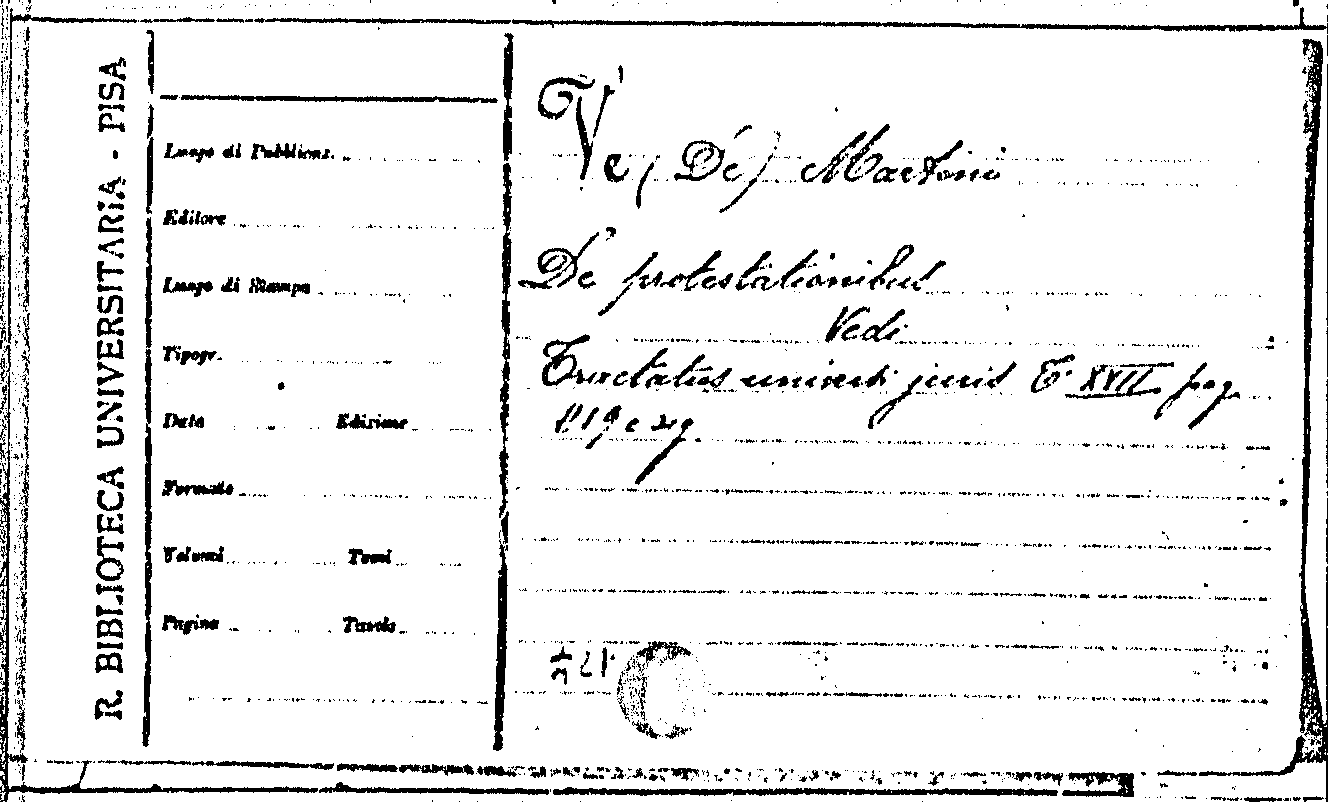 R. BIBLIOTECA UNIVERSITARIA - PISA
Luogo di Pubblicaz.
Editore
Luogo di Stampa
Tipogr.
Data Edizione
Formato
Volumi Tomi
Pagine Tavole
Ve (De) Martino
De protestationibus
Vedi
Tractatus universi juris T. XVII pag.
e seg.